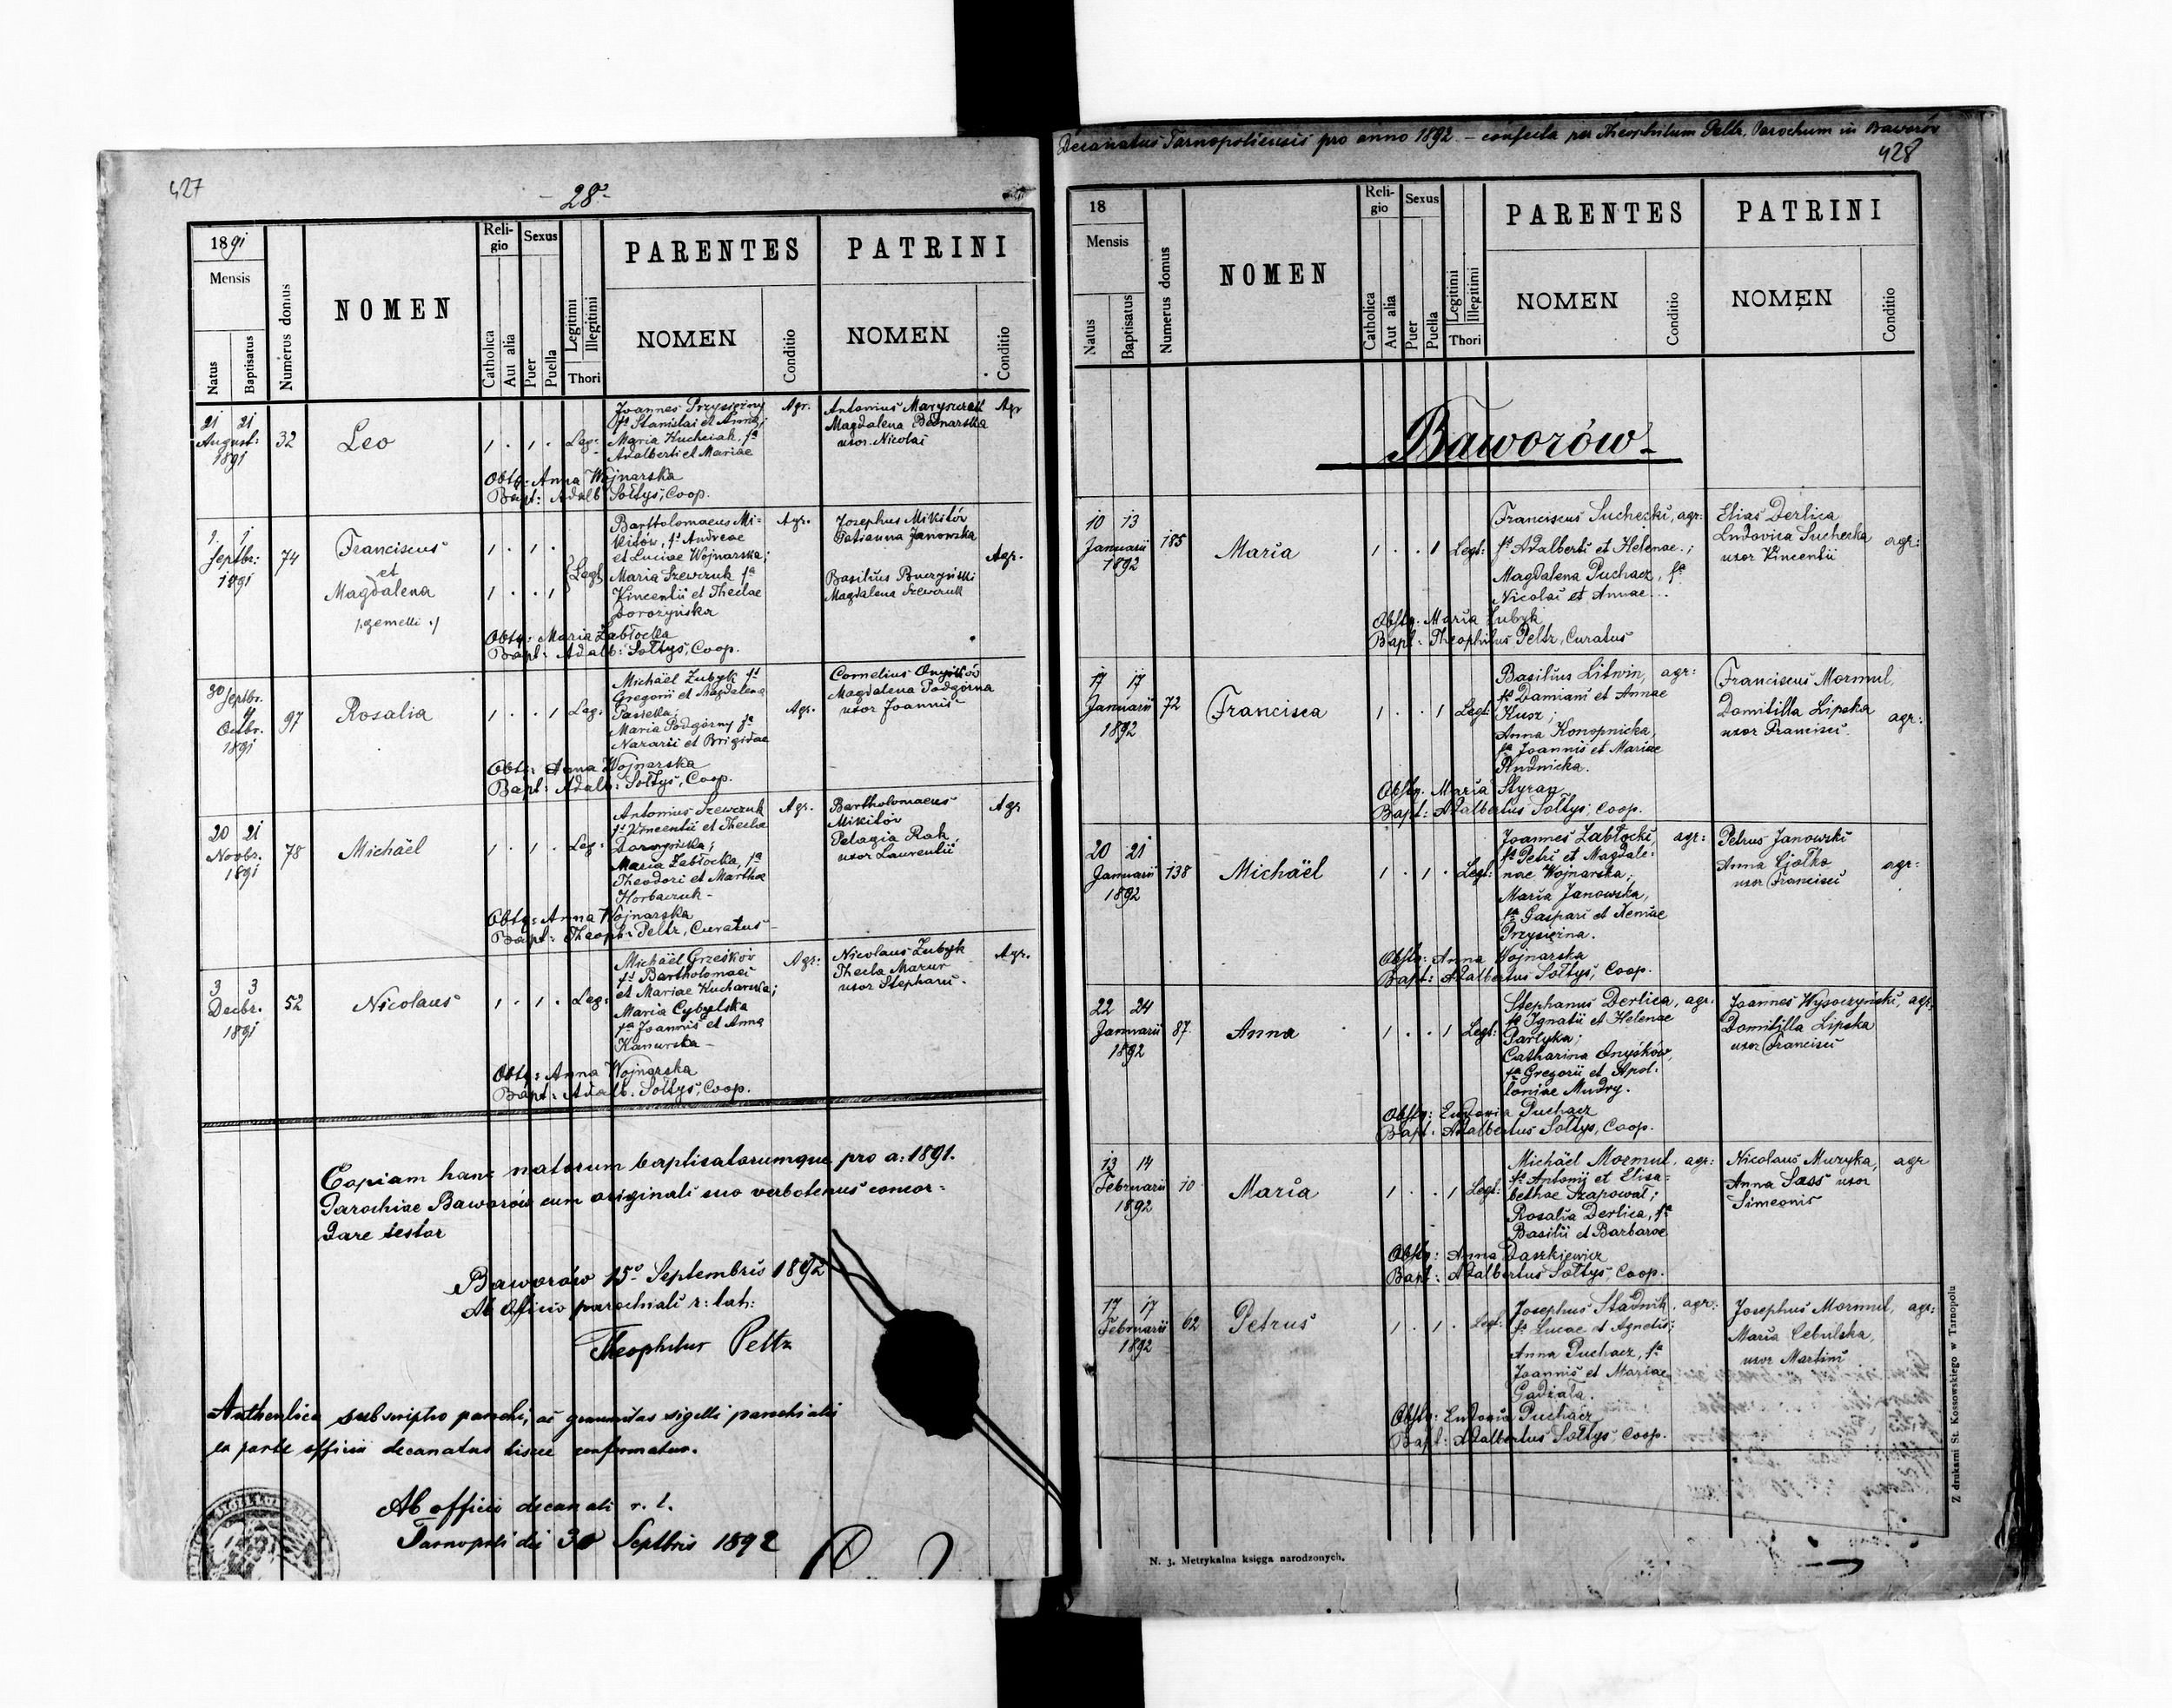 427
- 28 -
1891
Mensis
Natus
Baptisatus
Numerus domus
NOMEN
Religio
Catholica
Aut alia
Sexus
Puer
Puella
Legitimi
Illegitimi
Thori
PARENTES
NOMEN
Conditio
PATRINI
NOMEN
Conditio
21 21
August:
1891
32
Leo
1 . 1 . Leg:
Joannes Przysiężny
fs Stanislai et Annae;
Maria Kucheiak, fa
Adalberti et Mariae
Agr.
Antonius
Magdalena Bednarska
uxor Nicolai
Agr
Obstr: Anna Wojnarska
Bapt: Adalb Sołtys, Coop.
1. 1
Septbr:
1891
74
Franciscus
et
Magdalena
/: gemelli :/
1 . 1 .
1 . . 1
Legt
Bartholomaeus Mi-
kitów, fs Andreae
et Luciae Wojnarska;
Maria Szewczuk fa
Vincentii et Theclae
Dorożyńska
Agr.
Josephus Mikitów
Tatianna Janowska
Basilius Buczyński
Magdalena Szewczuk
Agr.
Obstr: Maria Zabłocka
Bapt: Adalb: Sołtys, Coop.
30 Septbr.
4
Octbr.
1891
97
Rosalia
1 . . 1 Leg:
Michaël Zubyk fs
Gregorii et Magdalena
Pasieka;
Maria Podgórny fa
Nazarii et Brigidae
Agr.
Cornelius Onyśków
Magdalena Podgórna
uxor Joannis
Obst: Anna Wojnarska
Bapt: Adalb: Sołtys, Coop.
20 21
Novbr.
1891
78
Michaël
1 . 1 . Leg:
Antonius Szewczuk
fs Vincentii et Thecla
Dorożyńska;
Maria Zabłocka, fa
Theodori et Martha
Horbaczuk -
Agr.
Bartholomaeus
Mikitów
Pelagia Rak
uxor Laurentii
Agr
Obstr: Anna Wojnarska
Bapt: Theoph: Peltz, Curatus
3 3
Decbr.
1891
52
Nicolaus
1 . 1 . Leg:
Michaël Grześków
fs Bartholomaei
et Mariae Kucharska;
Maria Cybulska
fa Joannis et Anna
Kanurska -
Agr:
Nicolaus Zubyk
Thecla Mazur
uxor Stephani
Agr.
Obstr: Anna Wojnarska
Bapt: Adalb. Sołtys, Coop.
Copiam hanc natorum baptisatorumque pro a: 1891.
Parochiae Baworów cum originali suo verbotenus concor-
dare testor
Baworów 15o Septembris 1892
Ab Officio parochiali r: lat:
Theophilus Peltz
Authentica subscriptio parochi, ac genuinitas sigilli parochialis
ex parte officii decanatus hisce confirmatur.
Ab officio decanali r. l.
Tarnopoli die 30 Septbris 1892
Decanatus Tarnopoliensis pro anno 1892 - confecta per Theophilum Peltz, Parochum in Baworów
428
18
Mensis
Natus
Baptisatus
Numerus domus
NOMEN
Religio
Catholica
Aut alia
Sexus
Puer
Puella
Legitimi
Illegitimi
Thori
PARENTES
NOMEN
Conditio
PATRINI
NOMEN
Conditio
Baworów -
10 13
Januarii
1892
185
Maria
1 . . 1 Legt:
Franciscus Suchezki, agr:
fs Adalberti et Helenae.;
Magdalena Puchacz, fa
Nicolai et Annae..
Elias Derlica
Ludovica Suchezka
uxor Vincentii
agr:
Obstr. Maria Zubyk
Bapt: Theophilus Peltz, Curatus
17 17
Januarii
1892
72
Francisca
1 . . 1 Legt:
Basilius Litwin, agr:
fs Damiani et Annae
Kusz;
Anna Konopnicka,
fa Joannis et Mariae
Rudnicka.
Franciscus Mormul,
Domitilla Lipska
uxor Francisci.
agr:
Obstr. Maria Styran
Bapt: Adalbertus Sołtys, Coop.
20 21
Januarii
1892
138
Michaël
1 . 1 . Legt:
Joannes Zabłocki, agr:
fs Petri et Magdale-
nae Wojnarska;
Maria Janowska,
fa Gaspari et Xeniae
Przysiężna.
Petrus Janowski
Anna Ciołko
uxor Francisci
agr:
Obstr: Anna Wojnarska
Bapt: Adalbertus Sołtys, Coop.
22 24
Januarii
1892
87
Anna
1 . . 1 Legt:
Stephanus Derlica, agr:
fs Ignatii et Helenae
Parłyka;
Catharina Onyśków,
fa Gregorii et Apol-
loniae Mudry.
Joannes Wysoczyński, agr:
Domitilla Lipska
uxor Francisci
Obstr: Eudoxia Puchacz
Bapt: Adalbertus Sołtys, Coop.
13 14
Februarii
1892
10
Maria
1 . . 1 Legt:
Michaël Mormul, agr:
fs Antonii et Elisa-
bethae Szapował;
Rosalia Derlica, fa
Basilii et Barbarae
Nicolaus Muzyka, agr
Anna Sass uxor
Simeonis
Obstr: Anna Daszkiewicz
Bapt: Adalbertus Sołtys, Coop.
17 17
Februarii
1892
62
Petrus
1 . 1 . Legt.
Josephus Stadnik, agr:
fs Lucae et Agnetis;
Anna Puchacz, fa
Joannis et Mariae
Gadzała.
Josephus Mormul, agr:
Maria Cebulska,
uxor Martini
Obstr: Eudoxia Puchacz
Bapt: Adalbertus Sołtys, Coop.
N. 3. Metrykalna księga narodzonych.
Z drukarni St. Kossowskiego w Tarnopolu